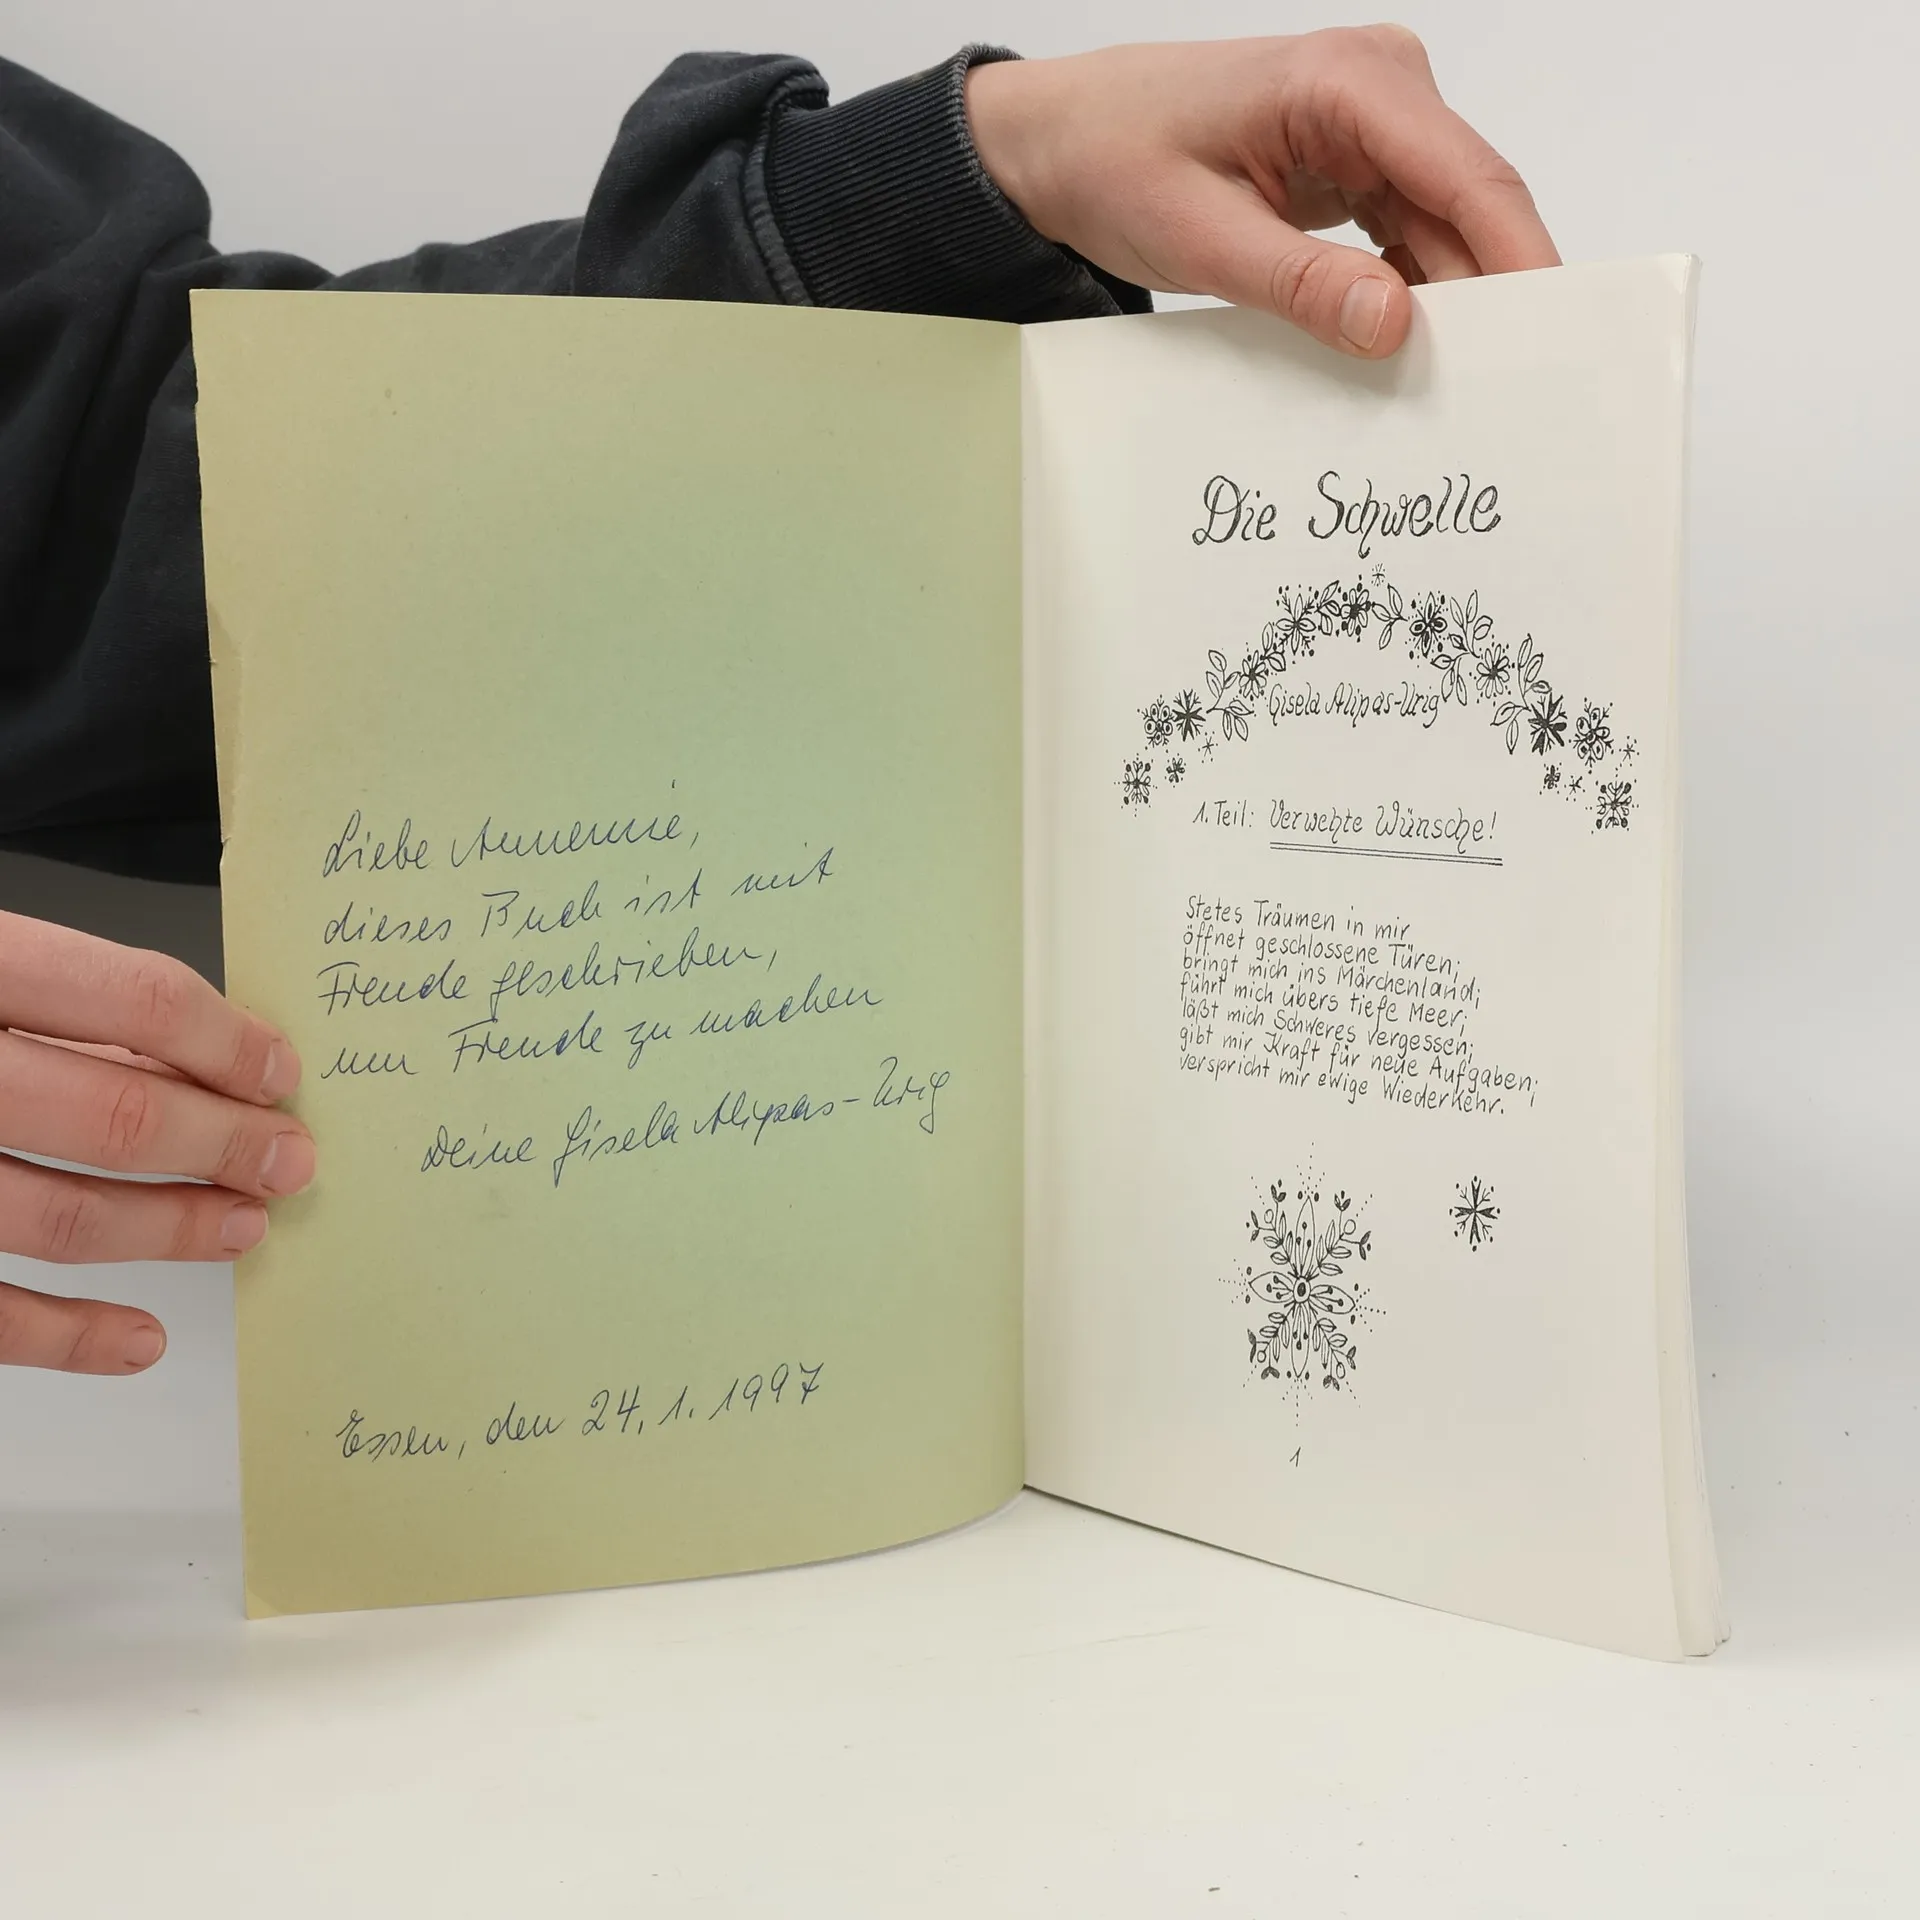 Liebe Annemie,
dieses Buch ist mit
Freude geschrieben,
um Freude zu machen
Deine Gisela Alipas-Urig
Essen, den 24.1.1997
Die Schwelle
Gisela Alipas-Urig
1. Teil: Verwehte Wünsche!
Stetes Träumen in mir
öffnet geschlossene Türen;
bringt mich ins Märchenland;
führt mich übers tiefe Meer;
läßt mich Schweres vergessen;
gibt mir Kraft für neue Aufgaben;
verspricht mir ewige Wiederkehr.
1